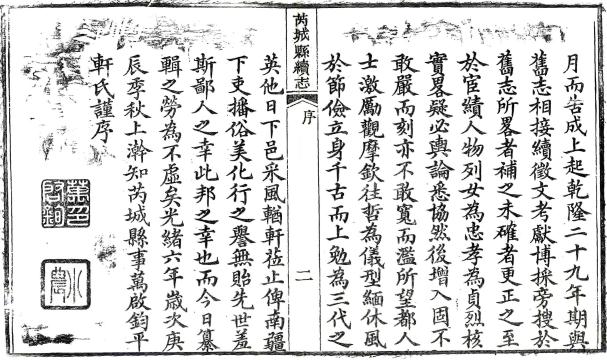 月而告成上起乾隆二十九年期與
舊志相接續徵文考獻博採旁搜於
舊志所畧者補之未確者更正之至
於宦績人物列女為忠孝為貞烈核
實畧疑必輿論悉協然後增入固不
敢嚴而刻亦不敢寬而濫所望都人
士激勵觀摩欽往哲為儀型緬休風
於節儉立身千古而上勉為三代之
芮城縣續志
序
二
英他日下邑采風輶軒蒞止俾南疆
下吏播俗美化行之譽無貽先世羞
斯鄙人之幸此邦之幸也而今日纂
輯之勞為不虛矣光緒六年歲次庚
辰季秋上澣知芮城縣事萬啟鈞平
軒氏謹序
萬印啟鈞
小農